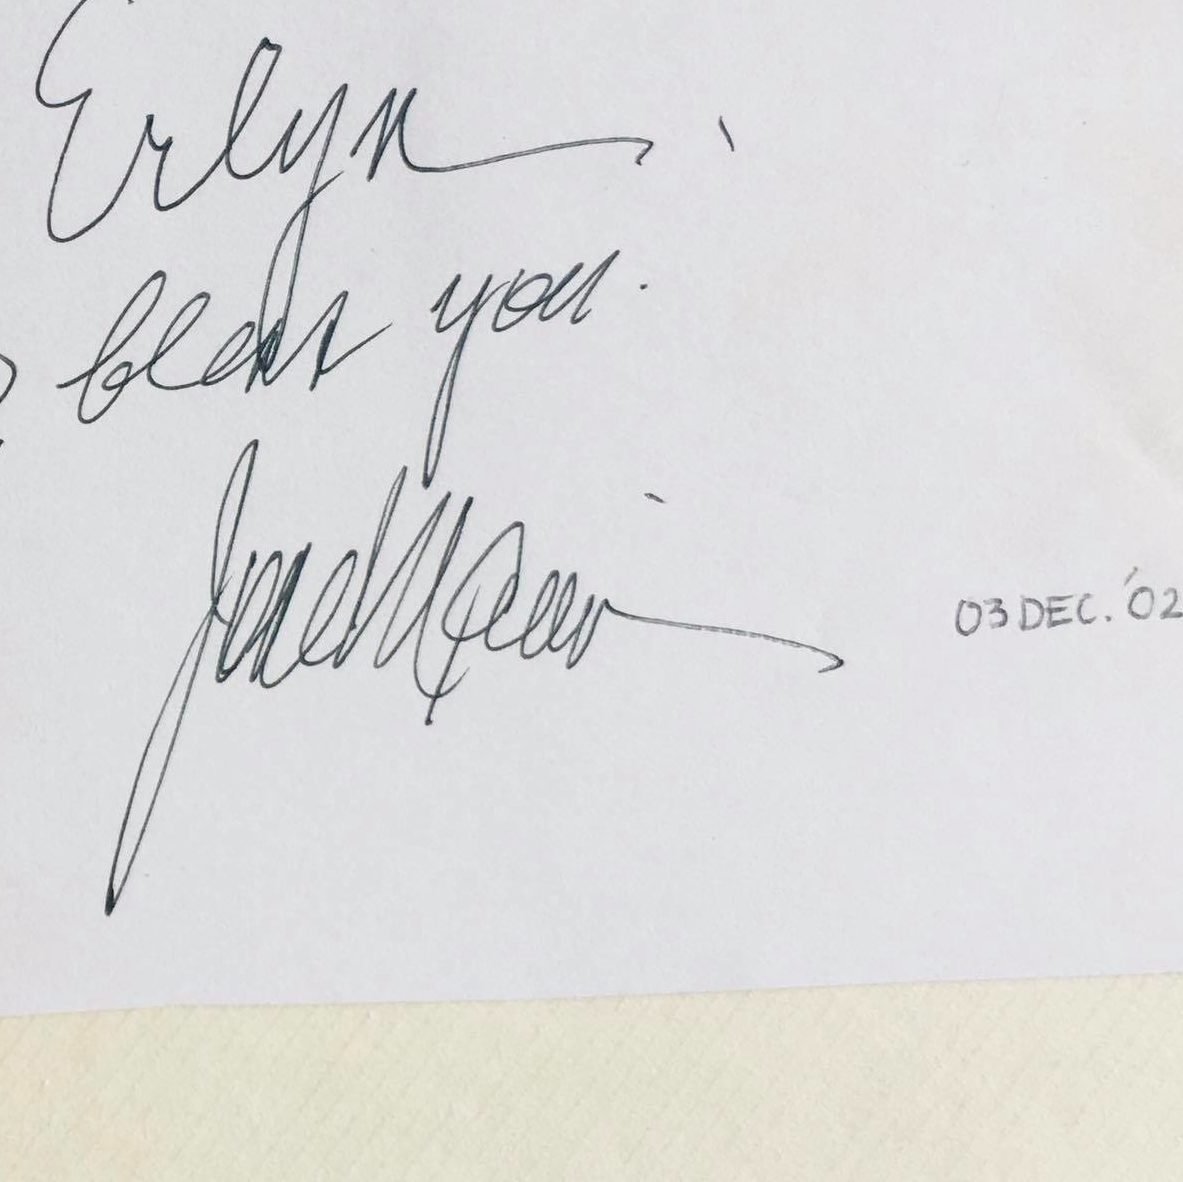 Erlyn
bless you.
03 DEC. '02